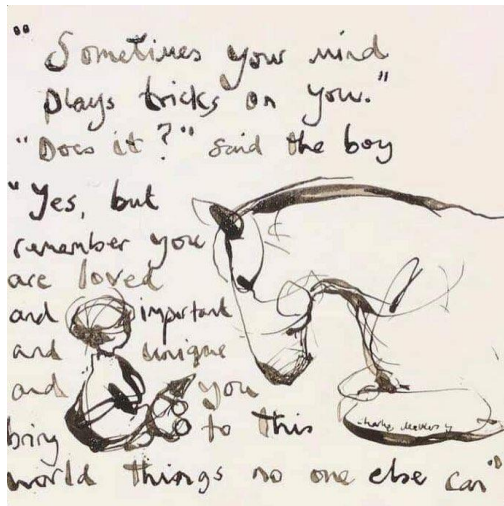 "Sometimes your mind
plays tricks on you."
"Does it?" said the boy
"Yes, but
remember you
are loved
and important
and unique
and you
bring to this
world things no one else can"